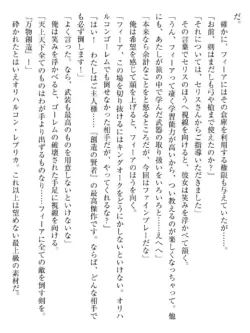 だ。
確かに、フィーアにはその倉庫に使える機能があるのだが……。
「お前、剣はまだうまく使えなかったろ?」
「そ、それにつきましては、セリスさんからご指導いただきました」
その言葉でセリスのほうへ視線を向けると、彼女は笑みを浮かべる。
「うん。フィーアってすごく学習能力が高いから、楽しくなっちゃって。他に
も、あたしが旅の中で学んだいろいろな武器の取り扱いを、いろいろと……えへへ」
「本来なら余計なことをと怒るところだが、今回はファインプレーだな」
俺は希望に感じて頭を上げると、フィーアのほうを向く。
「フィーア。この場を切り抜けるにはキングオークをどうにかしないといけない。オリハ
ルコンゴーレムでも倒せなかった相手だが、やってくれるな?」
「はい! わたしはご主人様……『創造の賢者』の最高傑作です。ならば、どんな相手で
も必ず倒します!」
「よく言った。なら、武装も最高のものを用意しないといけないな」
俺は笑みを浮かべると、ゴーレムの破壊された手足に視線を向ける。
すべてのものはわが手より出ずるもの……フィーアに全ての敵を倒す剣を。
「万物創造」
砕かれたとはいえオリハルコン・レプリカ。これ以上は望めない最上級の素材だ。